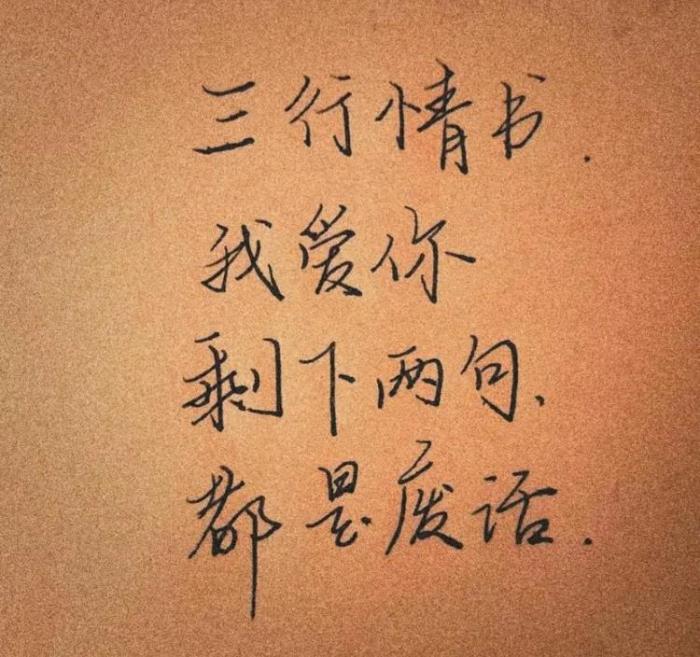 三行情书.
我爱你
剩下两句、
都是废话.